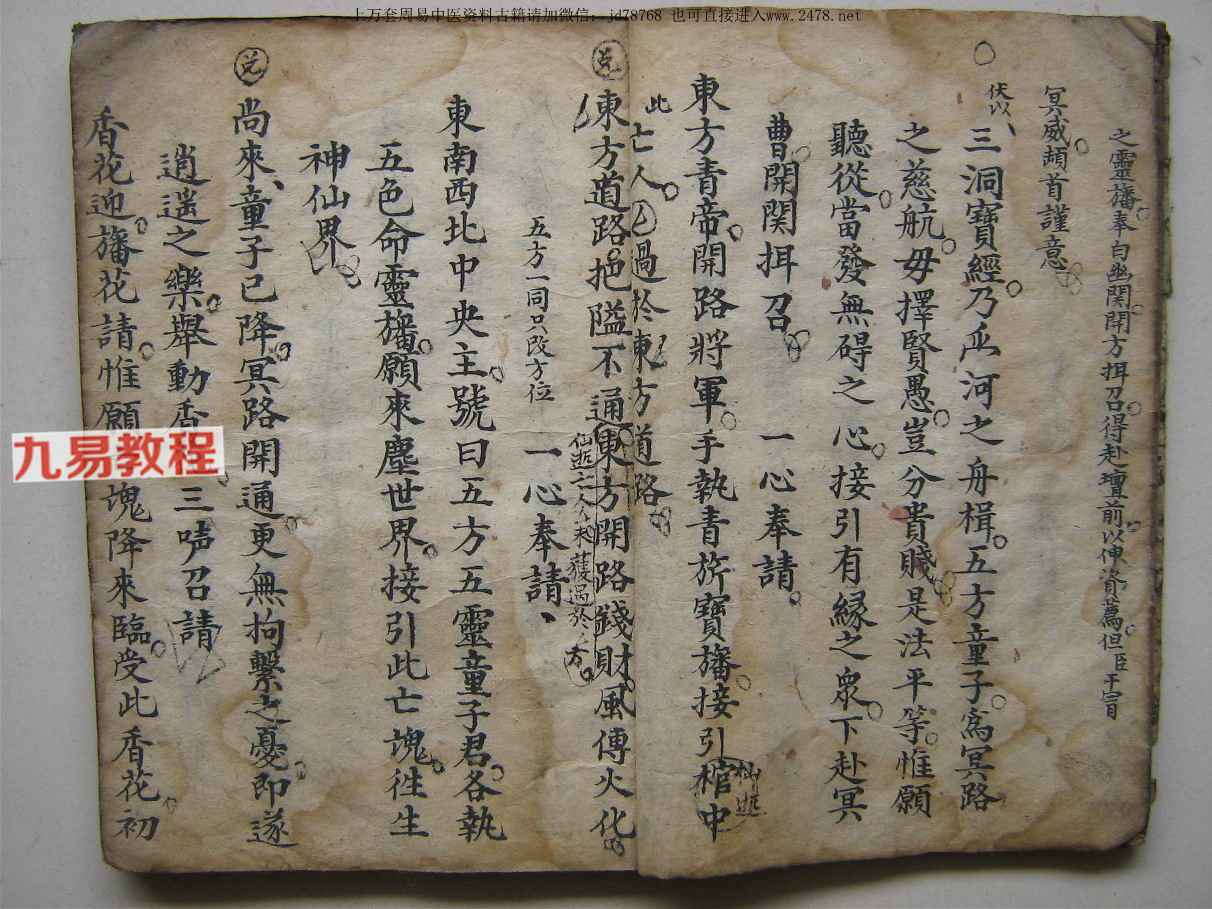 上万套周易中医资料古籍请加微信: jd78768 也可直接进入www.2478.net
之靈旛奉白幽関開方捐召得赴壇前以伸資薦但臣干冒
冥威頼首謹意
伏以
三洞寶經乃血河之舟楫五方童子為冥路
之慈航毋擇賢愚豈分貴賤是法平等惟願
聽從當發無碍之心接引有緣之衆下赴冥
曹開関捐召 一心奉請
東方青帝開路將軍手執青旂寶旛接引棺中
此亡人過於東方道路
兑
東方道路把隘不通東方開路錢財風傳火化
仙逝亡人
五方一同只改方位
一心奉請
東南西北中央主號曰五方五靈童子君各執
五色命靈旛願來塵世界接引此亡魂徃生
神仙界
兑
尚來童子已降冥路開通更無拘繫之憂即遂
逍遥之樂舉動香 三唪召請
香花迎旛花請惟願 魂降來臨受此香花初
九易教程